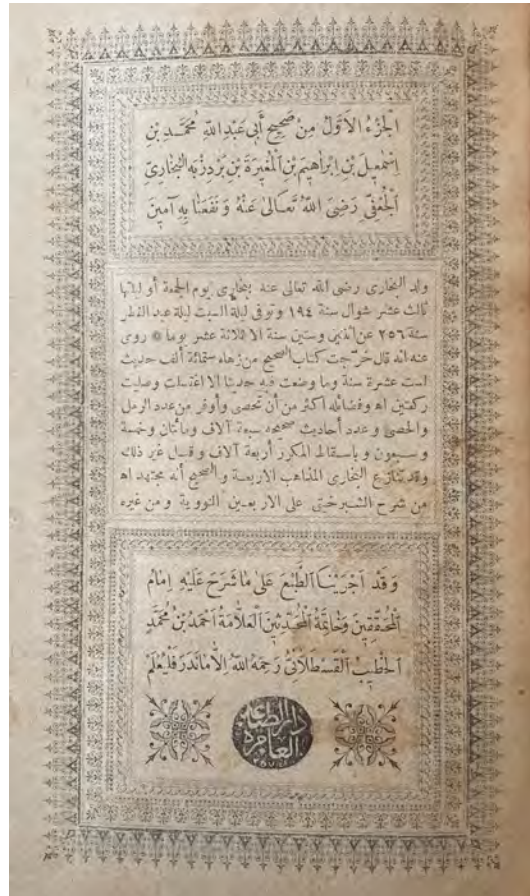 الْجُزْءُ الْاَوَّلُ مِنْ صَحِيحِ أَبِى عَبْدِ اللهِ مُحَمَّدِ بْنِ
اِسْمٰعِيلَ بْنِ اِبْرَاهِيمَ بْنِ الْمُغِيرَةِ بْنِ بَرْدِزْبَهِ الْبُخَارِىِّ
الْجُعْفِىِّ رَضِىَ اللهُ تَعَالٰى عَنْهُ وَنَفَعَنَا بِهِ آمِينَ
ولد البخارى رضى الله تعالى عنه ببخارى يوم الجمعة أو ليلتها
ثالث عشر شوال سنة ١٩٤ وتوفى ليلة السبت ليلة عيد الفطر
سنة ٢٥٦ عن اثنين وستين سنة الا ثلاثة عشر يوما * روى
عنه انه قال خرّجت كتاب الصحيح من زهاء ستمائة ألف حديث
لست عشرة سنة وما وضعت فيه حديثا الا اغتسلت وصليت
ركعتين اه وفضائله اكثر من أن تحصى وأوفر من عدد الرمل
والحصى وعدد أحاديث صحيحه سبعة آلاف ومائتان وخمسة
وسبعون وباسقاط المكرر أربعة آلاف وقيل غير ذلك
وقد تنازع البخارى المذاهب الاربعة والصحيح أنه مجتهد اه
من شرح الشبرخيتى على الاربعين النووية ومن غيره
وَقَدْ اَجْرَيْنَا الطَّبْعَ عَلٰى مَا شَرَحَ عَلَيْهِ اِمَامُ
الْمُحَقِّقِينَ وَخَاتِمَةُ الْمُحَدِّثِينَ الْعَلَّامَةُ اَحْمَدُ بْنُ مُحَمَّدٍ
الْخَطِيبُ الْقَسْطَلَّانِىُّ رَحِمَهُ اللهُ اِلَّا مَا نَدَرَ فَلْيُعْلَمْ
دار الطباعة
العامره